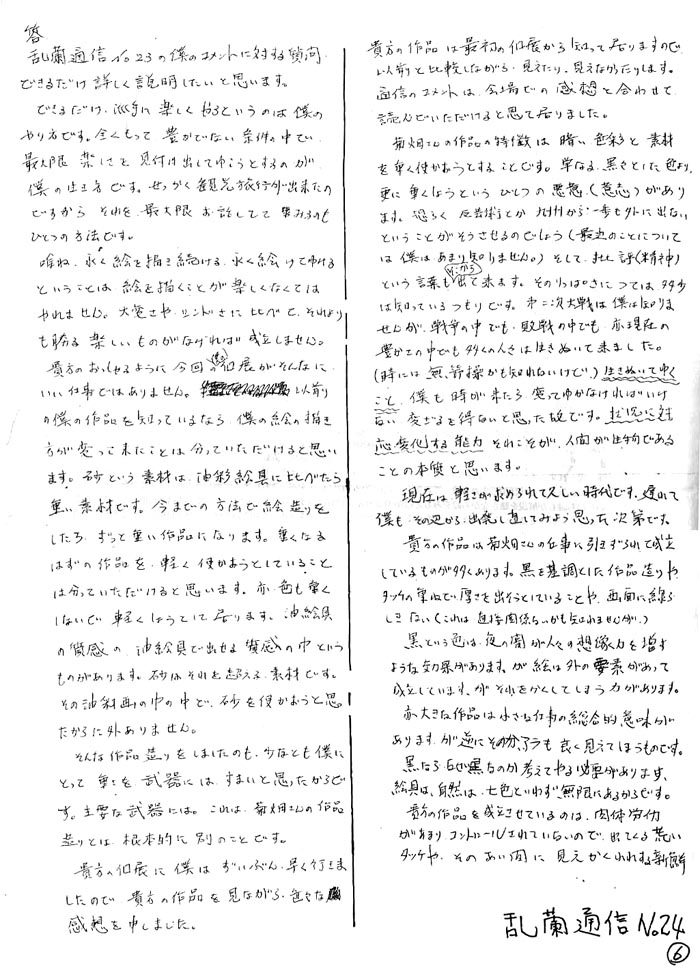 答
乱蘭通信No.23の僕のコメントに対する質問、
できるだけ詳しく説明したいと思います。
できるだけ、楽しくやるというのは僕の
やり方です。全くもって豊かでない条件の中で、
最大限楽しさを見付け出してゆこうとするのが
僕の生き方です。せっかく観光旅行が出来たの
ですから それを最大限お話しして楽みるのも
ひとつの方法です。
永く絵を描き続ける、永く絵けてゆける
ということは 絵を描くことが楽しくなくては
やれません。
も勝る楽しいものがなければ成立しません。
貴方のおっしゃるように今回の個展がそんなに
いい仕事ではありません。以前
の僕の作品を知っているなら、僕の絵の描き
方が変って来たことは分っていただけると思い
ます。砂という素材は、油彩絵具に比べたら
重い素材です。今までの方法で絵造りを
したら、ずっと重い作品になります。重くなる
はずの作品を、軽く使かおうとしていること
は分っていただけると思います。亦、色も重く
しないで軽くしようとして居ります。油絵具
の質感の、油絵具で出せる質感の中という
ものがあります。砂はそれを超える素材です。
その油彩画の中の中で、砂を使かおうと思っ
たからに外ありません。
そんな作品造りをしましたのも、少なくとも僕に
とって重さを武器には、すまいと思ったからで
す。主要な武器には。これは、菊畑さんの作品
造りとは、根本的に別のことです。
貴方の個展に僕はずいぶん早く行きま
したので 貴方の作品を見ながら、色々な
感想を申しました。
貴方の作品は最初の個展から知って居りますので、
以前と比較しながら、見えたり、見えなかったりします。
通信のコメントは、会場での感想と合わせて
読んでいただけると思って居りました。
菊畑さんの作品の特徴は暗い色彩と素材
を重く使かおうとすることです。単なる、黒々とした色より、
更に重くしようというひとつの悪意(意志)があり
ます。恐らく反芸術とか九州から一歩も外に出ない
ということがそうさせるのでしょう(最近のことについて
は僕はあまり知りません。)そして、批評(精神)
という言葉もそこから出て来ます。そのりっぱさについては多少
は知っているつもりです。第二次大戦は僕は知りま
せんが、戦争の中でも、敗戦の中でも、亦現在の
豊かさの中でも多くの人々は生きぬいて来ました。
(時には無節操かも知れないけど)生きぬいてゆく
こと、僕も時が来たら変ってゆかなければいけ
ない、変ざるを得ないと思った故です。状況に対
応変化する能力 それこそが、人間が生物である
ことの本質と思います。
現在は軽さが求められて久しい時代です。遅れて
僕も、その辺から、出発し直してみよう思った次第です。
貴方の作品は菊畑さんの仕事に引きずられて成立
しているものが多くあります。黒を基調とした作品造りや、
タッチの重ねで厚さを出そうとしていることや、画面に緑
しきない(これは直接関係ないかも知れませんが。)
黒という色は、夜の闇が人々の想像力を増す
ような効果があります。が絵は外の要素があって
成立しています、がそれをかくしてしまう力があります。
亦大きな作品は小さな仕事の総合的意味が
あります。が逆にその分、アラも良く見えてしまうものです。
黒なら、なぜ黒なのか考えてやる必要があります。
絵具は、自然は、七色といわず、無限にあるからです。
貴方の作品を成立させているのは、肉体労働
があまりコントロールされていないので、出てくる荒い
タッチや、そのあい間に見えかくれする新鮮
乱蘭通信No.24
6